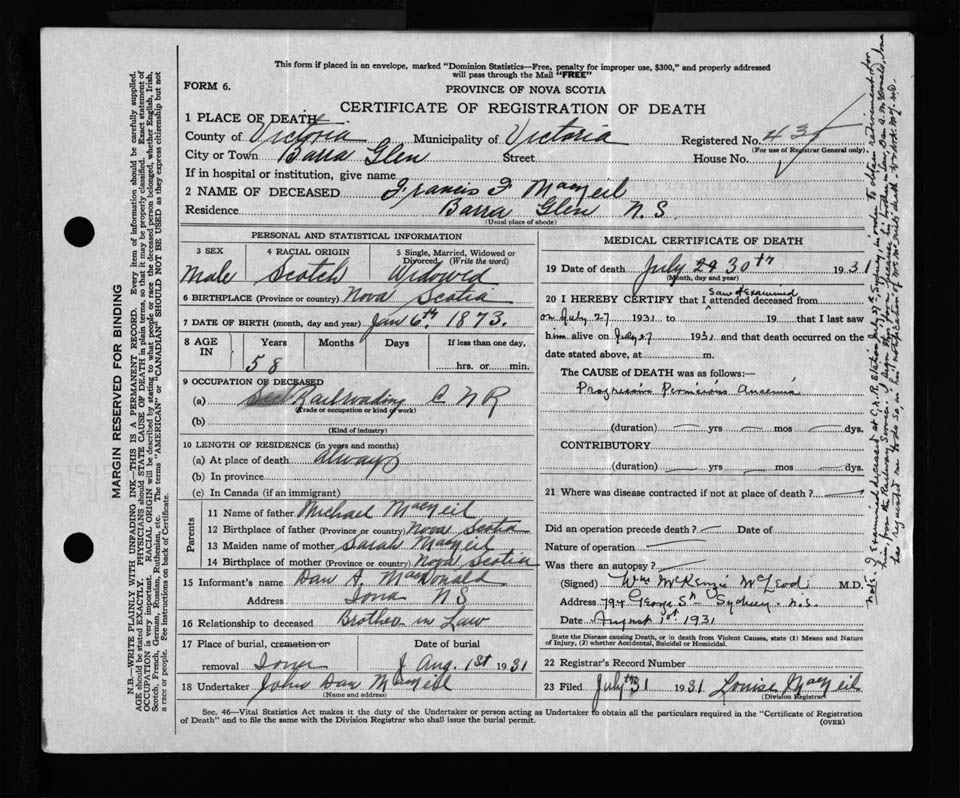 This form if placed in an envelope, marked "Dominion Statistics—Free, penalty for improper use, $300," and properly addressed
will pass through the Mail "FREE"
FORM 6.
PROVINCE OF NOVA SCOTIA
CERTIFICATE OF REGISTRATION OF DEATH
1 PLACE OF DEATH
County of Victoria Municipality of Victoria Registered No. 435
(For use of Registrar General only)
City or Town Barra Glen Street House No.
If in hospital or institution, give name
2 NAME OF DECEASED Francis F MacNeil
Residence Barra Glen N.S.
(Usual place of abode)
PERSONAL AND STATISTICAL INFORMATION
3 SEX 4 RACIAL ORIGIN 5 Single, Married, Widowed or
Divorced (Write the word)
Male Scotch Widowed
6 BIRTHPLACE (Province or country) Nova Scotia
7 DATE OF BIRTH (month, day and year) Jan 6th 1873.
8 AGE IN Years Months Days If less than one day,
58 hrs. or min.
9 OCCUPATION OF DECEASED
(a) Railroading C N R
(Trade or occupation or kind of work)
(b)
(Kind of industry)
10 LENGTH OF RESIDENCE (in years and months)
(a) At place of death always
(b) In province
(c) In Canada (if an immigrant)
Parents
11 Name of father Michael MacNeil
12 Birthplace of father (Province or country) Nova Scotia
13 Maiden name of mother Sarah MacNeil
14 Birthplace of mother (Province or country) Nova Scotia
15 Informant's name Dan A. MacDonald
Address Iona NS
16 Relationship to deceased Brother in Law
17 Place of burial, cremation or Date of burial
removal Iona Aug. 1st 1931
18 Undertaker John Dan MacNeil
(Name and address)
MEDICAL CERTIFICATE OF DEATH
19 Date of death July 29 30th 1931
(Month, day and year)
saw & Examined
20 I HEREBY CERTIFY that I attended deceased from
on July 27 1931 to 19 that I last saw
him alive on July 27 1931 and that death occurred on the
date stated above, at m.
The CAUSE of DEATH was as follows:—
Progressive Pernicious Anaemia
(duration) yrs mos dys.
CONTRIBUTORY
(duration) yrs mos dys.
21 Where was disease contracted if not at place of death?
Did an operation precede death? Date of
Nature of operation
Was there an autopsy?
(Signed) Wm McKenzie McLeod M.D.
Address 794 George St Sydney N.S.
Date August 1st 1931
State the Disease causing Death, or in death from Violent Causes, state (1) Means and Nature
of Injury, (2) whether Accidental, Suicidal or Homicidal.
22 Registrar's Record Number
23 Filed July 31 1931 Louise MacNeil
(Division Registrar)
Sec. 46—Vital Statistics Act makes it the duty of the Undertaker or person acting as Undertaker to obtain all the particulars required in the "Certificate of Registration
of Death" and to file the same with the Division Registrar who shall issue the burial permit.
(OVER)
MARGIN RESERVED FOR BINDING
N.B.—WRITE PLAINLY WITH UNFADING INK—THIS IS A PERMANENT RECORD. Every item of information should be carefully supplied.
AGE should be stated EXACTLY. PHYSICIANS should STATE CAUSE OF DEATH in plain terms, so that it may be properly classified. Exact statement of
OCCUPATION is very important. RACIAL ORIGIN will be described by stating to what people or race the deceased person belonged, whether English, Irish,
Scotch, French, German, Russian, Ruthenian, etc. The terms "AMERICAN" or "CANADIAN" SHOULD NOT BE USED as they express citizenship but not
a race or people. See instructions on back of Certificate.
Note. I Examined deceased at C.N.R. Station July 27th, Sydney, in order to obtain retirement for
him, from the Railway Service. I sign this form because his brother in law, Dan A. McDonald, has
requested me to do so, in his notification of McNeil's death. W. McK. McL. M.D.